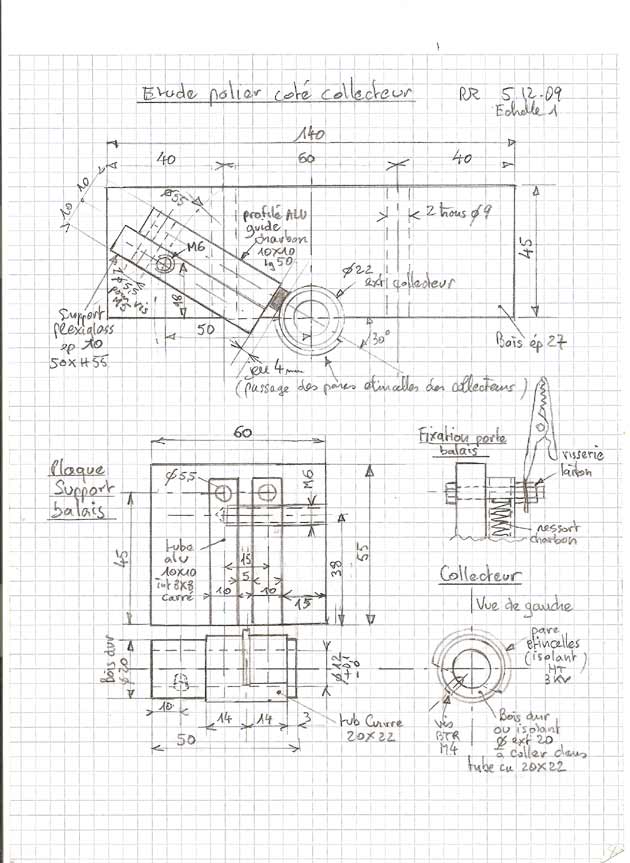 Etude palier coté collecteur
RR 5.12.09
Echelle 1
140
40
60
40
10
10
ø55
M6
profilé ALU
guide
charbon
10x10
lg 50
2 trous ø9
45
ø22
ext collecteur
pour vis
M5
Support
plexiglass
ep 10
50x#55
50
30°
Bois ép 27
jeu 4 mm
(passage des pares etincelles des collecteurs)
60
Plaque
Support
balais
ø5,5
M6
tube
alu
10x10
int 8x8
carré
15
5
10
10
15
45
38
55
Fixation porte
balais
visserie
laiton
ressort
charbon
Bois dur
ø20
10
14
14
3
50
ø12
+0,1
-0
tub Cuivre
20x22
Collecteur
Vue de gauche
pare
etincelles
(isolant)
HT
3KV
vis
BTR
M4
Bois dur
ou isolant
ø ext 20
à coller dans
tube cu 20x22